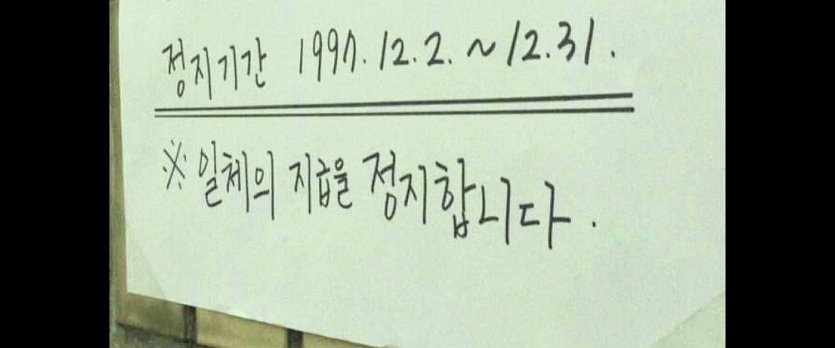 정지기간 1997. 12. 2. ~ 12. 31.
※ 일체의 지급을 정지합니다.